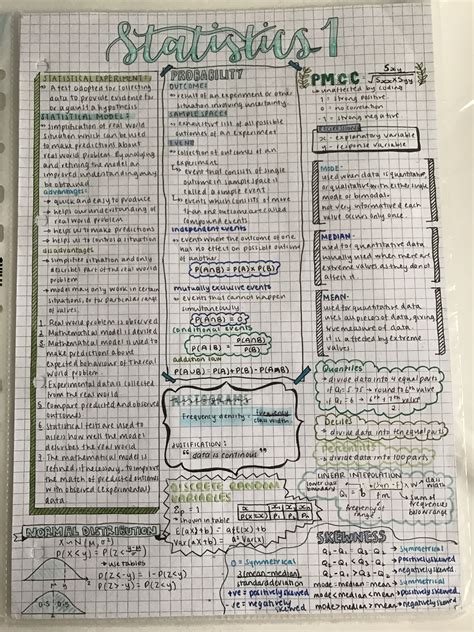 Statistics 1
STATISTICAL EXPERIMENT
- a test adopted for collecting
data to provide evidence for
or against a hypothesis
STATISTICAL MODEL
- simplification of real world
situation which can be used
to make predictions about
real world problem. By analysing
and refining the model an
improved understanding may
be obtained
advantages:
→ quick and easy to produce
→ helps our understanding of
real world problem
→ helps us make predictions
→ helps us to control a situation
disadvantages
→ simplifies situation and only
describes part of the real world
problem
→ model may only work in certain
situations, or for particular range
of values
1 Real world problem is observed
2 Mathematical model is devised
3 Mathematical model is used to
make predictions about
expected behaviour of the real
world problem
4 Experimental data is collected
from the real world
5 Compare predicted and observed
outcomes
6 Statistical tests are used to
assess how well the model
describes the real world
7 The mathematical model is
refined if necessary, to improve
the match of predicted outcomes
with observed (experimental)
data.
NORMAL DISTRIBUTION
→ use tables
P(Z > -y) = P(Z < y)
0.5 0.5
PROBABILITY
OUTCOME
- result of an experiment or other
situation involving uncertainty
SAMPLE SPACE
- exhaustive list of all possible
outcomes of an experiment
EVENT
- collection of outcomes of an
experiment
→ event that consists of single
outcome in sample space is
called a simple event
→ events which consists of more
than one outcome are called
compound events
independent events
→ events where the outcome of one
has no effect on possible outcome
of another
P(A∩B) = P(A) × P(B)
mutually exclusive events
→ events that cannot happen
simultaneously
P(A∩B) = 0
conditional events
P(A|B) = P(A∩B) / P(B)
addition law
P(A∪B) = P(A) + P(B) - P(A∩B)
HISTOGRAMS
frequency density = frequency / class width
JUSTIFICATION:
" data is continuous "
DISCRETE RANDOM
VARIABLES
Σp = 1
→ shown in table
E(aX+b) = aE(X)+b
Var(aX+b) = a² Var(X)
0 = symmetrical
3(mean-median)
standard deviation
+ve = positively skewed
-ve = negatively skewed
PMCC
Sxy
√Sxx × Syy
→ unaffected by coding
1 = strong positive
0 = no correlation
-1 = strong negative
x - explanatory variable
y - response variable
MODE-
used when data is quantitative,
or qualitative with either single
mode or bimodal
not very informative if each
value occurs only once
MEDIAN-
used for quantitative data
usually used when there are
extreme values as they do not
affect it
MEAN-
used for quantitative data
uses all pieces of data, giving
true measure of data
it is affected by extreme
values
Quantiles
→ divide data into 4 equal parts
Deciles
→ divide data into ten equal parts
Percentiles
→ divide data into 100 parts
LINEAR INTERPOLATION
lower class
boundary
class
width
frequency of
range
sum of
frequencies
below range
SKEWNESS
Q2-Q1 = Q3-Q2 → symmetrical
Q2-Q1 < Q3-Q2 → positively skewed
Q2-Q1 > Q3-Q2 → negatively skewed
mode = median = mean → symmetrical
mode < median < mean → positively skewed
mode > median > mean → negatively skewed